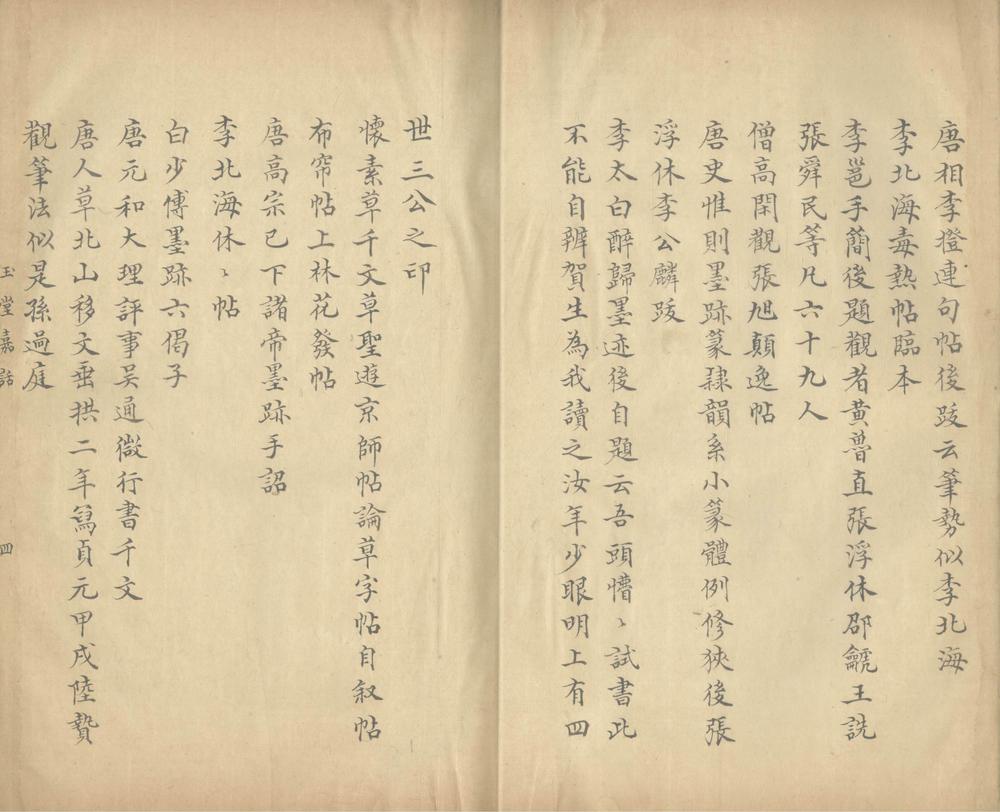 唐相李磴連句帖後跋云筆勢似李北海
李北海毒熱帖臨本
李邕手簡後題觀者黄魯直張浮休邵龥王詵
張舜民等凡六十九人
僧高閑觀張旭顛逸帖
唐史惟則墨跡篆隷韻系小篆體例修狹後張
浮休李公麟跋
李太白醉歸墨迹後自題云吾頭懵〻試書此
不能自辨賀生為我讀之汝年少眼明上有四
世三公之印
懷素草千文草聖遊京師帖論草字帖自叙帖
布帘帖上林花發帖
唐高宗已下諸帝墨跡手詔
李北海休〻帖
白少傅墨跡六偈子
唐元和大理評事吴通微行書千文
唐人草北山移文垂拱二年寫貞元甲戌陸贄
觀筆法似是孫過庭
玉堂嘉話
四